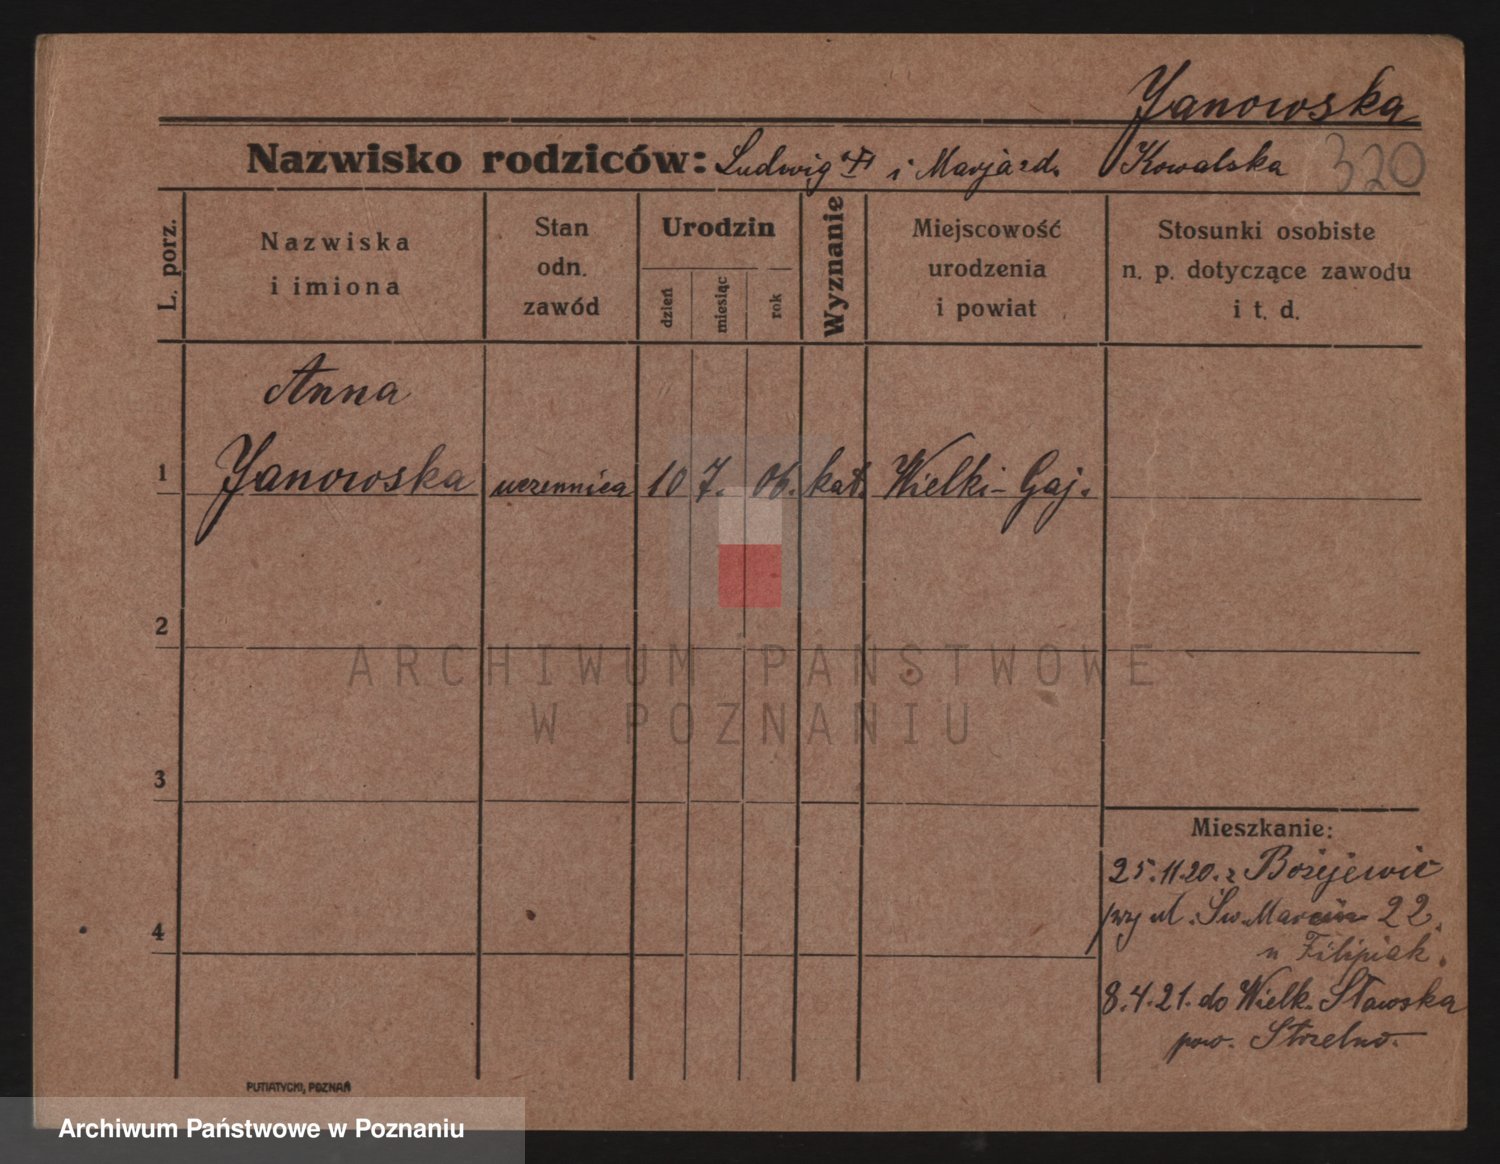 Janowska
Nazwisko rodziców: Ludwig i Marja zd. Kowalska 320
L. porz.
Nazwiska
i imiona
Stan
odn.
zawód
Urodzin
dzień
miesiąc
rok
Wyznanie
Miejscowość
urodzenia
i powiat
Stosunki osobiste
n. p. dotyczące zawodu
i t. d.
Anna
1 Janowska uczennica 10 7. 06. kat. Wielki-Gaj.
2
3
4
ARCHIWUM PAŃSTWOWE
W POZNANIU
Mieszkanie:
25.11.20. z Bożejewic
przy ul. Św. Marcin 22.
u Filipiak.
8.4.21. do Wielk. Sławska
pow. Strzelno.
PUTIATYCKI, POZNAŃ
Archiwum Państwowe w Poznaniu